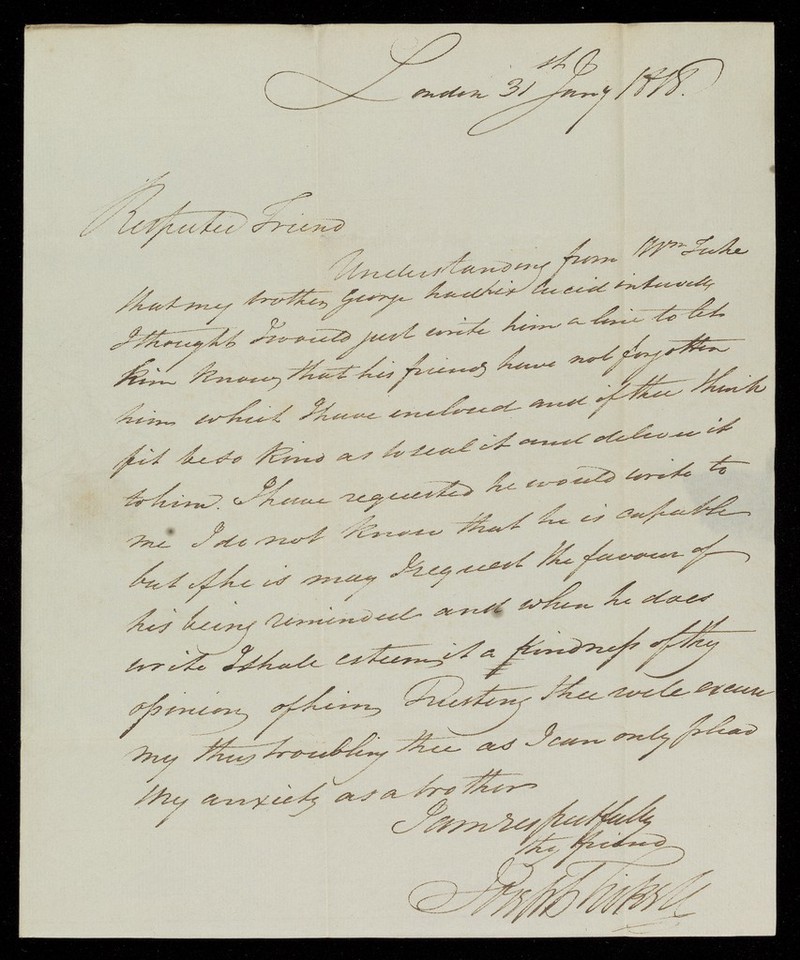 London 31st Jany 1818.
Respected Friend
Understanding from Wm Tuke
that my brother George had his lucid intervals
I thought I would just write him a line to let
him know that his friends have not forgotten
him which I have enclosed and if thee think
fit be so kind as to seal it and deliver it
to him. I have requested he would write to
me I do not know that he is capable
but if he is may I request the favour of
his being reminded and when he does
write I shall esteem it a kindness of thy
opinion of him Trusting thee will excuse
my thus troubling thee as I can only plead
my anxiety as a brother
I am respectfully
thy friend
Joseph